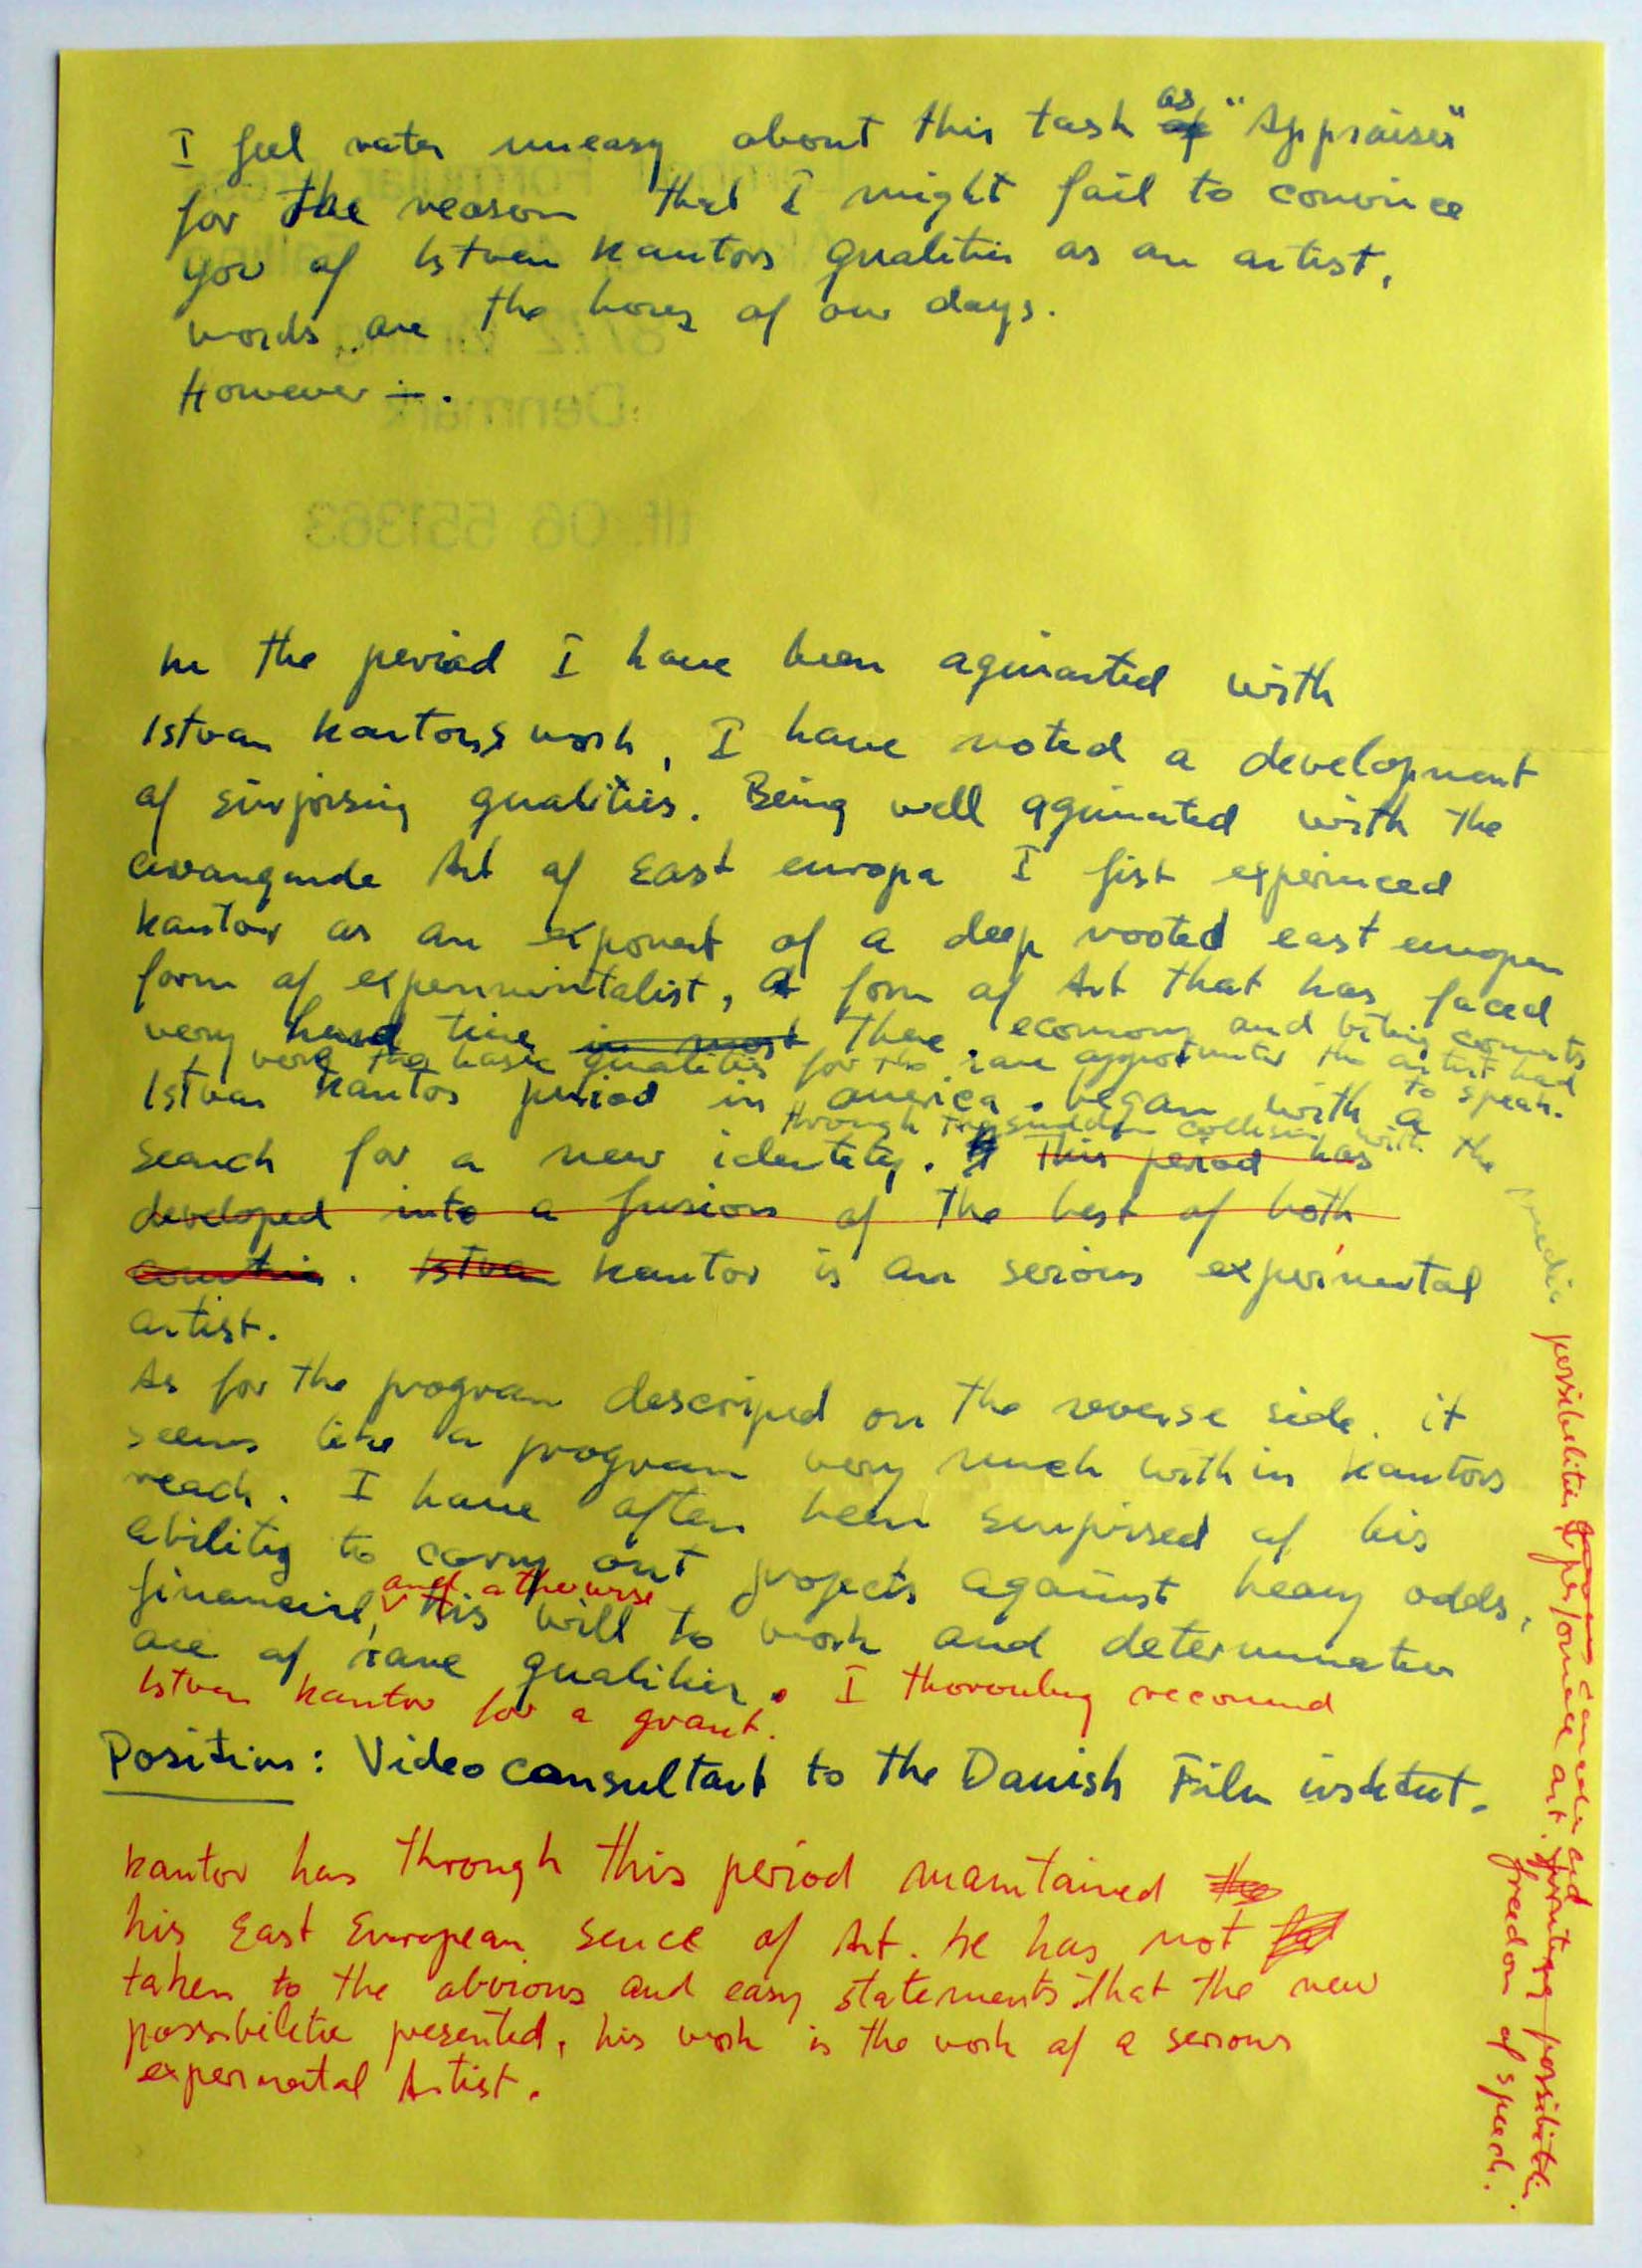 I feel rater uneasy about this task as "Appraiser"
for the reason that I might fail to convince
you of Istvan Kantors qualities as an artist,
words are the hores of our days.
However –.
In the period I have been aquianted with
Istvan Kantors work, I have noted a development
of surprising qualities. Being well aquinated with the
avangarde Art of East europa I first experinced
Kantor as an exponent of a deep rooted east europen
form of experimintalist, a form of Art that has faced
very hard time in most There economy and biting comments
were the basic qualities for the rare opportunities the artist had
to speak.
Istvan Kantos period in america. began with a
through the sudden collision with the media possibilities
search for a new identity. This period has
developed into a fusion of the best of both
countries. Istvan Kantor is an serious experimental
artist.
As for the program descriped on the reverse side, it
seems like a program very much within Kantors
reach. I have often been surprised of his
ability to carry out projects against heavy odds,
financiel, and otherwise his will to work and determination
are of rare qualities. I thorouhly recomend
Istvan Kantor for a grant.
Position: Video consultant to the Danish Film institut.
Kantor has through this period maintained the
his East European sence of Art. he has not
taken to the obvious and easy statements that the new
possibilitie presented, his work is the work of a serious
experimental Artist.
performance art.
canada and
possibilities
freedom of speech.
Denmark
tlf. 06 551363